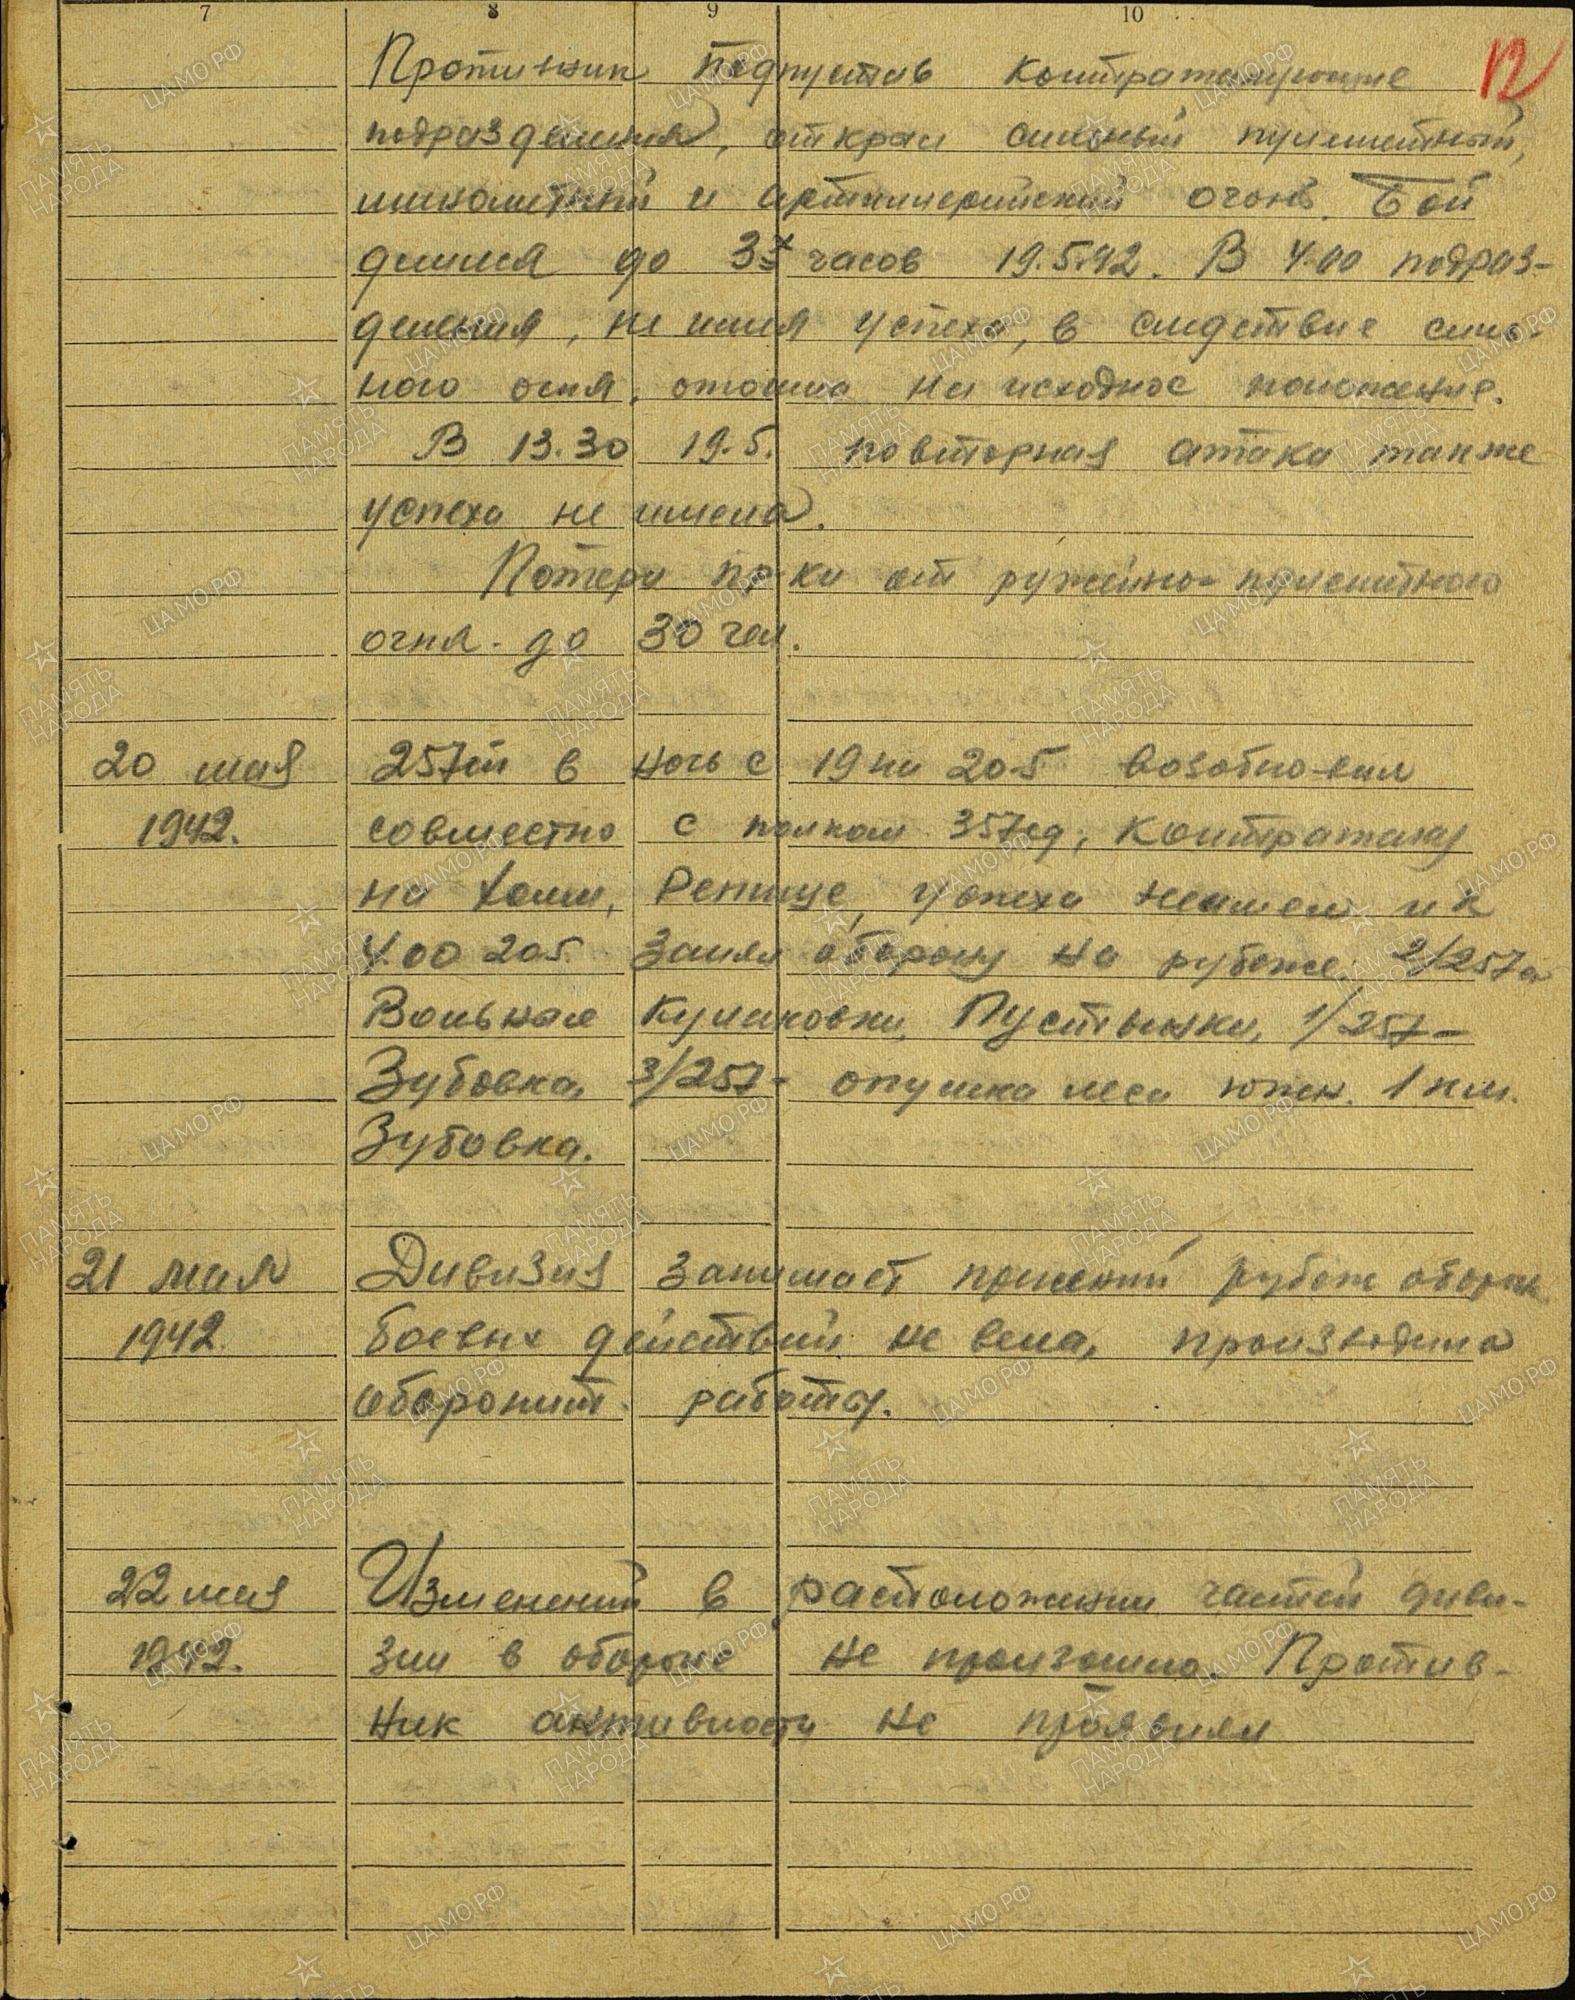 7 8 9 10
12
Противник подпустив контратакующие
подразделения, открыл сильный пулеметный,
минометный и артиллерийский огонь. Бой
длился до 3х часов 19.5.42. В 4.00 подраз-
деления, не имея успеха, в следствие силь-
ного огня, отошли на исходное положение.
В 13.30 19.5. повторная атака также
успеха не имела.
Потери пр-ка от ружейно-пулеметного
огня - до 30 чел.
20 мая 257сп в ночь с 19 на 20.5 возобновил
1942. совместно с полком 357сд, контратаку
на Холм, Репище, успеха не имел и к
4.00 20.5. занял оборону на рубеже: 2/257
Вольная Кулаковка, Пустынки, 1/257 -
Зубовка, 3/257 - опушка леса южн. 1 км.
Зубовка.
21 мая Дивизия занимает прежний рубеж оборон
1942. боевых действий не вела, производила
оборонит. работы.
22 мая Изменений в расположении частей диви-
1942. зии в обороне не произошло. Против-
ник активности не проявлял